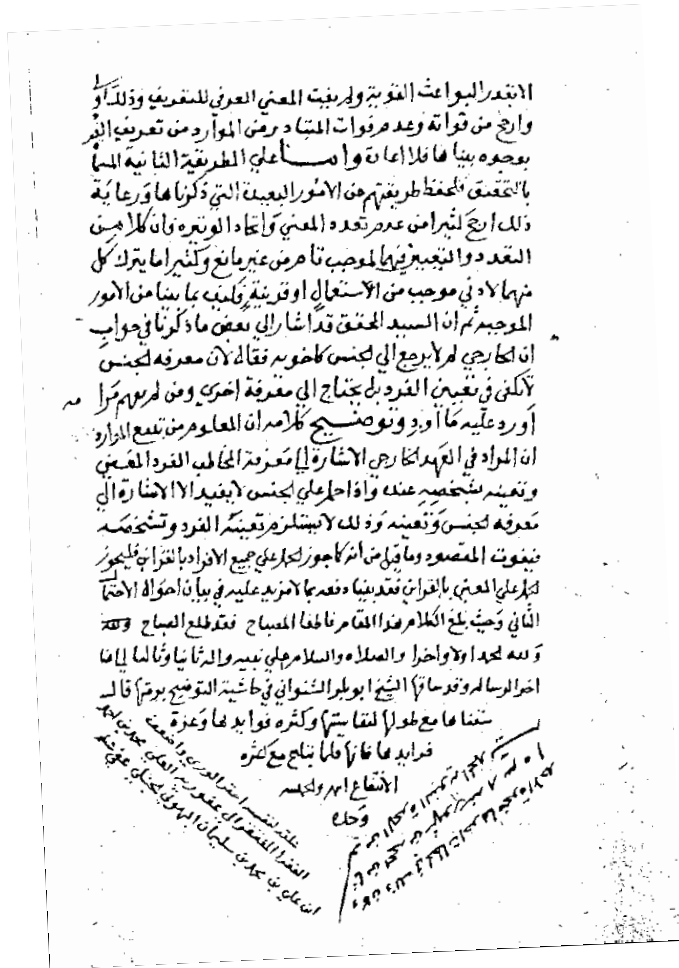 الا بقدر البواعث القوية ولم يفت المعني العرفي للتعريف وذلك اولي
وارجح من فواته وعدم فوات المتبادر من الموارد من تعريف الفرد
بوجوه بيناها فلا اعادة واما علي الطريقة الثانية المسماة
بالتحقيق فلحفظ طريقتهم من الامور البعيدة التي ذكرناها ورعاية
ذلك ارجح كثيرا من عدم تعدد المعني واتحاد الوتيرة فان كلا من
التعدد والتعبير فيهما لموجب تام من غير مانع وكثيرا ما يترك كل
منهما لادني موجب من الاستعمال او قرينة فكيف بما بينا من الامور
الموجبة ثم ان السيد المحقق قد اشار الي بعض ما ذكرنا في جواب
ان الخارجي لم لا يرجع الي الجنس كاخويه فقال لان معرفة الجنس
لا تكفي في تعيين الفرد بل يحتاج الي معرفة اخري ومن لم يفهم مرامه
اورد عليه ما اورد وتوضيح كلامه ان المعلوم من تتبع الموارد
ان المراد في العهد الخارجي الاشارة الي معرفة المخاطب الفرد المعين
وتعينه بشخصه عنده واذا حمل علي الجنس لا يفيد الا الاشارة الي
معرفة الجنس وتعينه وذلك لا يستلزم تعينه الفرد وتشخصه
فيفوت المقصود وما قيل من انه كما جوز الحمل علي جميع الافراد بالقراين فليجوز
الحمل علي المعين بالقراين فقد بينا دفعه بما لا مزيد عليه في بيان احواله الاحتمال
الثاني وحيث بلغ الكلام هذا المقام فاطفا المصباح فقد طلع الصباح ولله
ولله الحمد اولا واخرا والصلاه والسلام علي نبيه واله ثانيا وثالثا الي هنا
اخر الرسالة وقد ساقها الشيخ ابو بكر الشنواني في حاشية التوضيح برمتها قال
سقناها مع طولها لنفاستها وكثره فوايدها وعزة
فرايدها فانها قلما يتاح مع كثرة
الانتفاع اهـ والحمد لله
وحده
علقه لنفسه احقر الوري واضعف
الفقرا المفتقر الي عفو ربه العلي محمد بن احمد
ابن علي بن محمد بن سليمان البهوتي الحنبلي عفي عنه